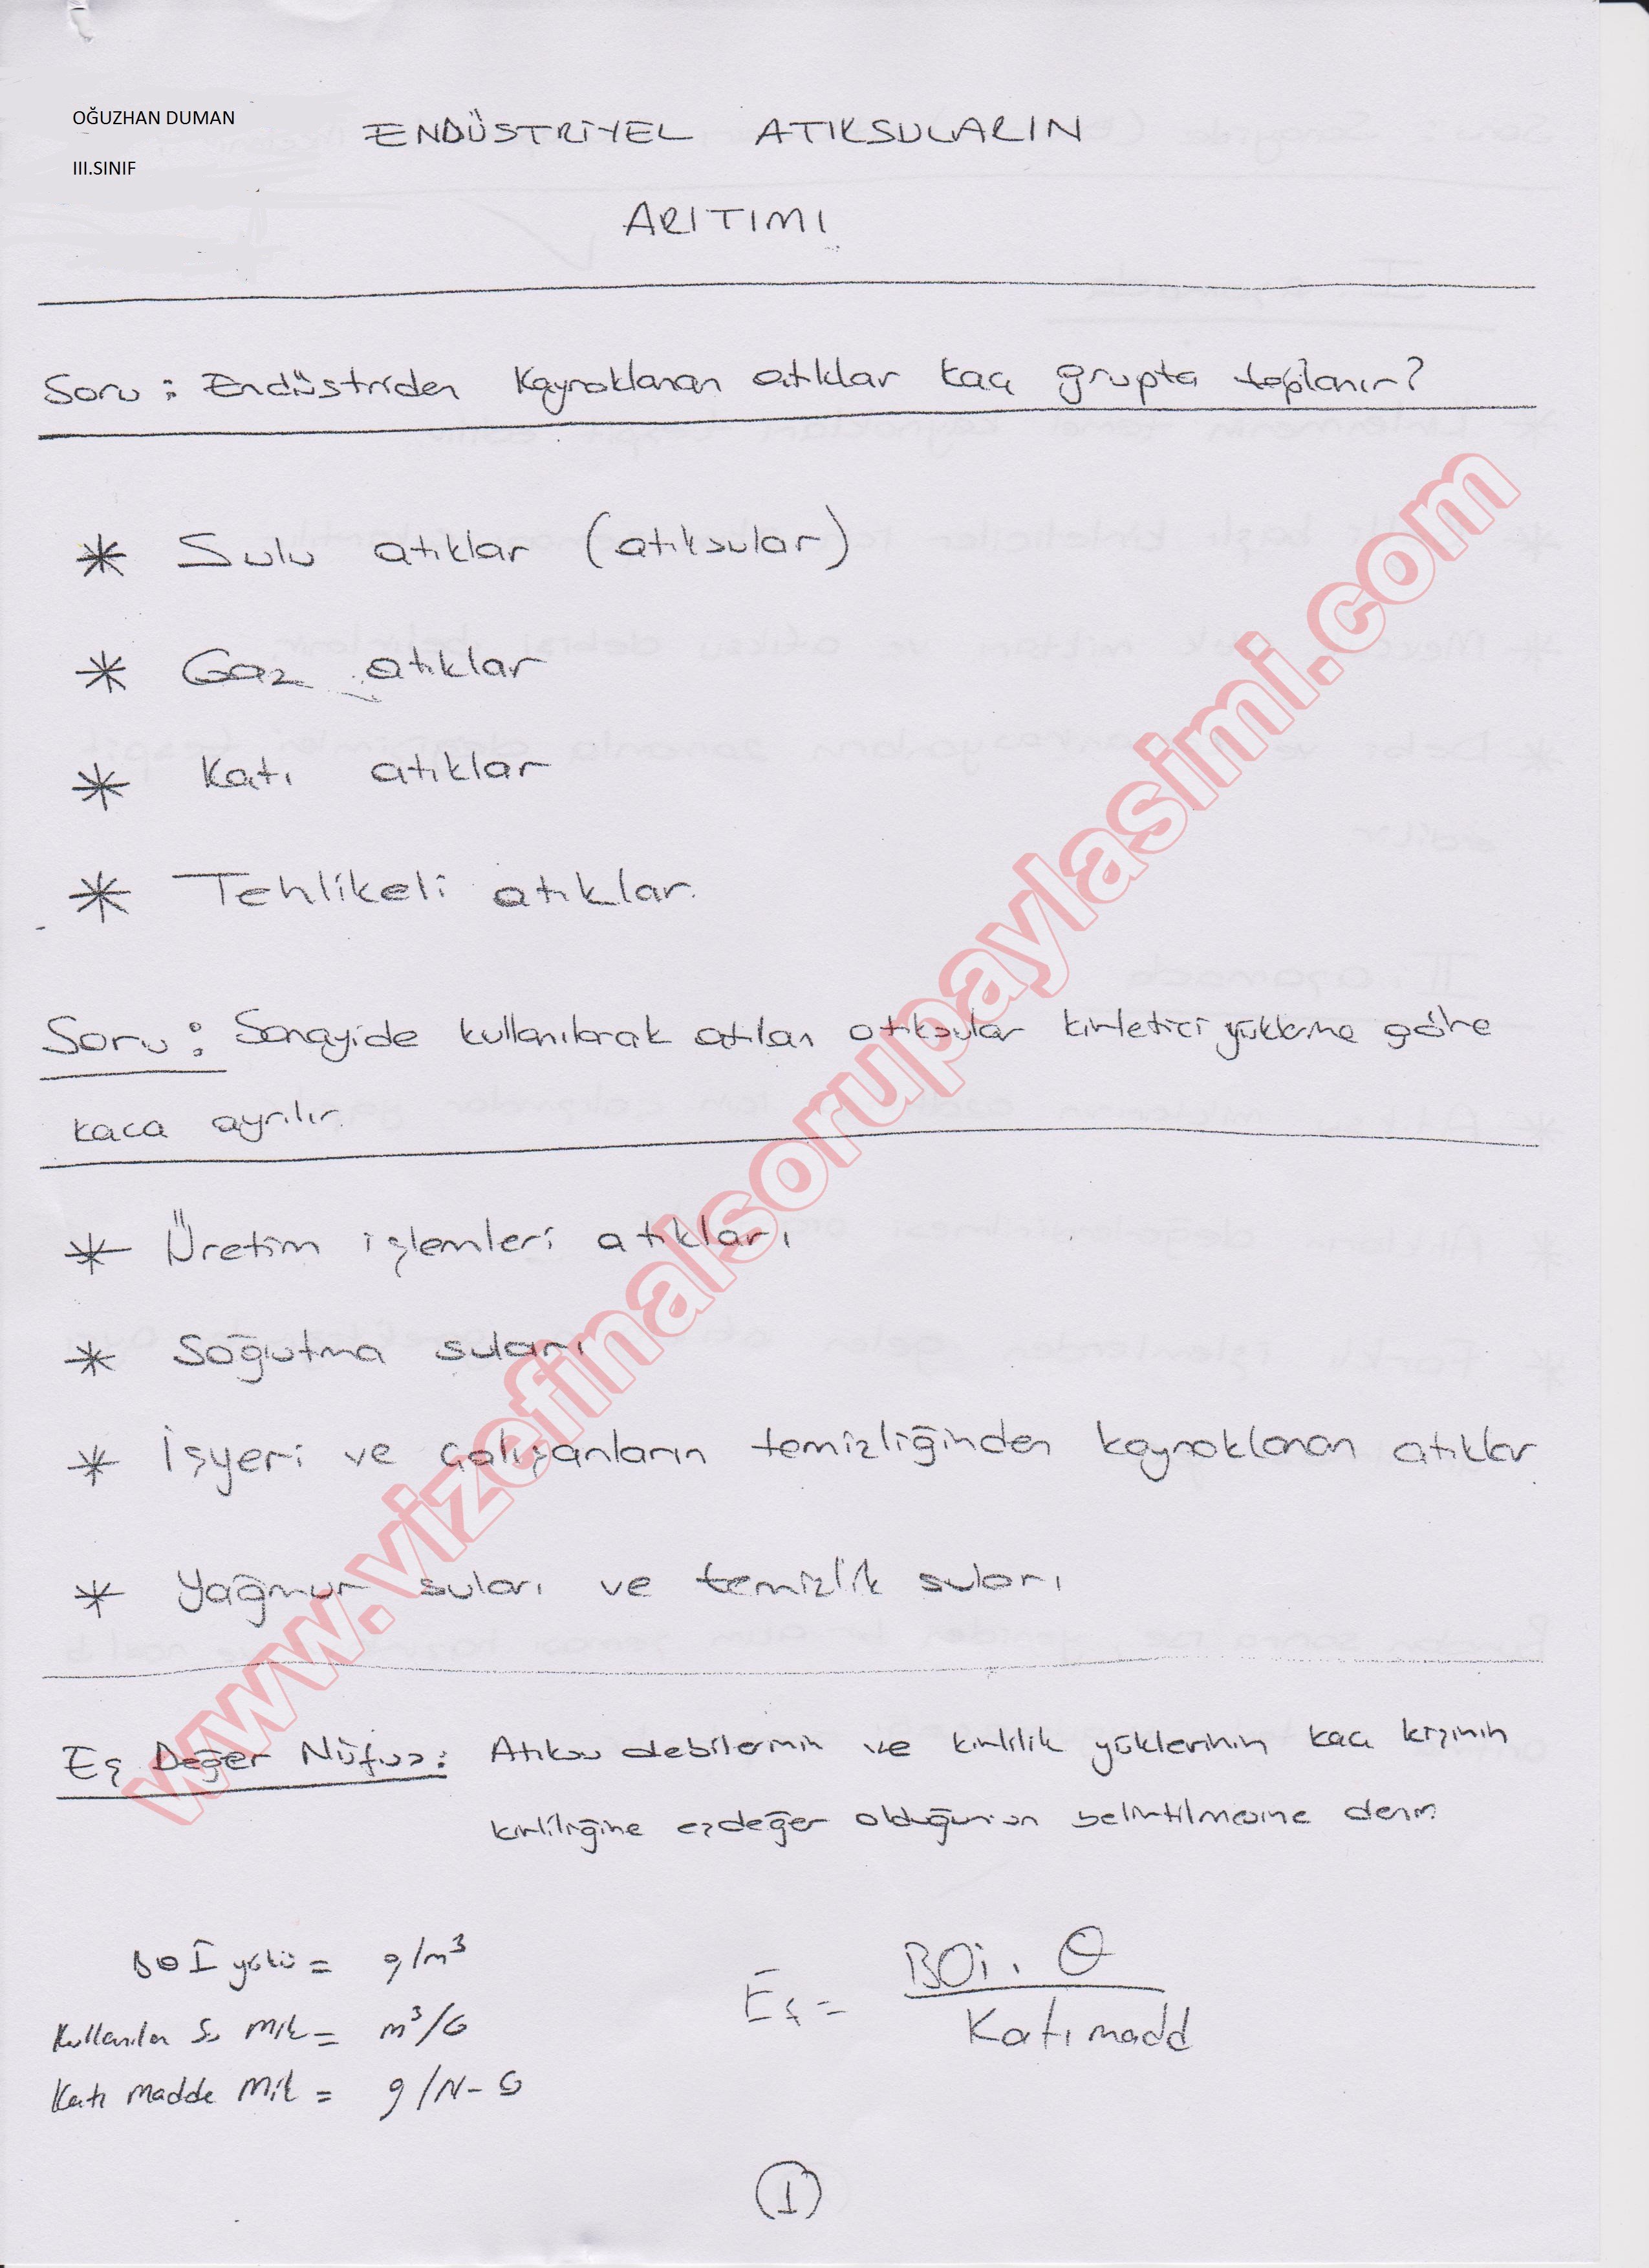 OĞUZHAN DUMAN
III.SINIF
ENDÜSTRİYEL ATIKSULARIN
ARITIMI
Soru : Endüstriden Kaynaklanan atıklar kaç grupta toplanır?
* Sulu atıklar (atıksular)
* Gaz atıklar
* Katı atıklar
* Tehlikeli atıklar.
Soru : Sanayide kullanılarak atılan atıksular kirletici yüklerine göre
kaca ayrılır.
* Üretim işlemleri atıkları
* Soğutma suları
* İşyeri ve çalışanların temizliğinden kaynaklanan atıklar
* Yağmur suları ve temizlik suları
Eş Değer Nüfus : Atıksu debilerinin ve kirlilik yüklerinin kaç kişinin
kirliliğine eşdeğer olduğunun belirtilmesine denir.
BOİ yükü = g/m³
Kullanılan Su Mik = m³/G
Katı madde Mik = g/N-G
Eş = BOİ . Q / Katı madd
1
www.vizefinalsorupaylasimi.com